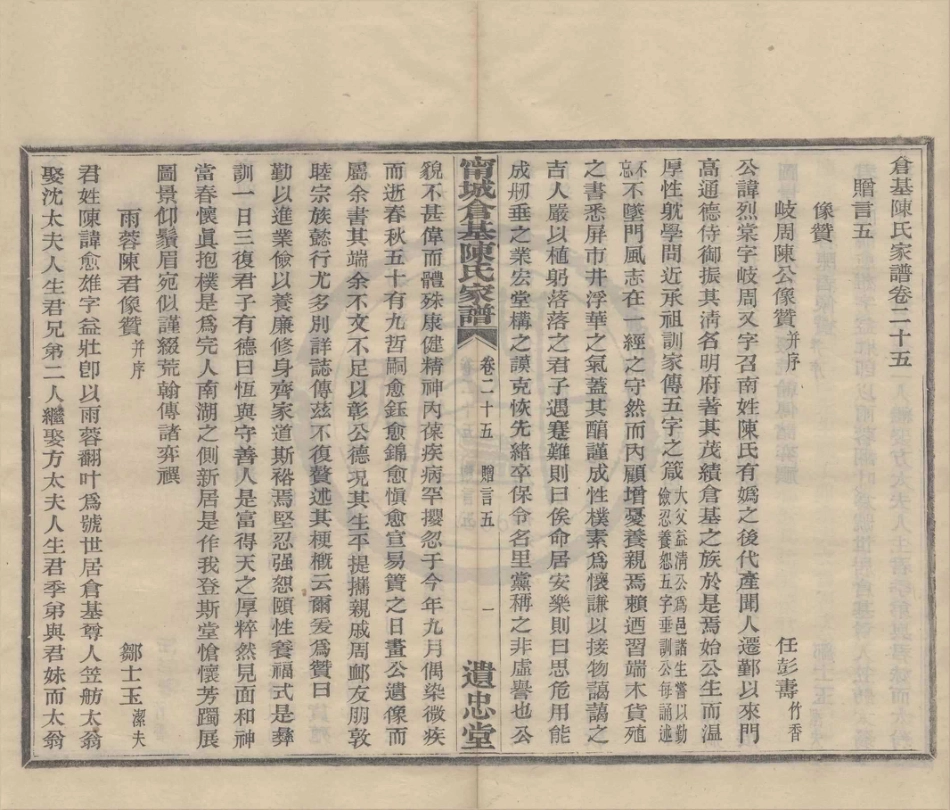 倉基陳氏家譜卷二十五
贈言五
像贊
岐周陳公像贊 并序
任彭壽 竹香
公諱烈棠字岐周又字召南姓陳氏有嬀之後代產聞人遷鄞以來門
高通德侍御振其清名明府著其茂績倉基之族於是焉始公生而溫
厚性躭學問近承祖訓家傳五字之箴大父益清公爲邑諸生嘗以勤儉忍養恕五字垂訓公每誦述
不忘不墜門風志在一經之守然而內顧增憂養親焉賴迺習端木貨殖
之書悉屏市井浮華之氣蓋其醕謹成性樸素爲懷謙以接物藹藹之
吉人嚴以植躬落落之君子遇蹇難則曰俟命居安樂則曰思危用能
成剏垂之業宏堂構之謨克恢先緒卒保令名里黨稱之非虛譽也公
甯城倉基陳氏家譜
卷二十五 贈言五
一
遺忠堂
貌不甚偉而體殊康健精神內葆疾病罕攖忽于今年九月偶染微疾
而逝春秋五十有九哲嗣愈鈺愈錦愈愼愈宣易簀之日畫公遺像而
屬余書其端余不文不足以彰公德況其生平提攜親戚周卹友朋敦
睦宗族懿行尤多別詳誌傳茲不復贅述其梗概云爾爰爲贊曰
勤以進業儉以養廉修身齊家道斯裕焉堅忍強恕頤性養福式是彝
訓一日三復君子有德曰恆與守善人是富得天之厚粹然見面和神
當春懷眞抱樸是爲完人南湖之側新居是作我登斯堂愴懷芳躅展
圖景仰鬚眉宛似謹綴荒翰傳諸弈禩
雨蓉陳君像贊 并序
鄒士玉 潔夫
君姓陳諱愈雄字益壯卽以雨蓉翻叶爲號世居倉基尊人笠舫太翁
娶沈太夫人生君兄弟二人繼娶方太夫人生君季弟與君妹而太翁